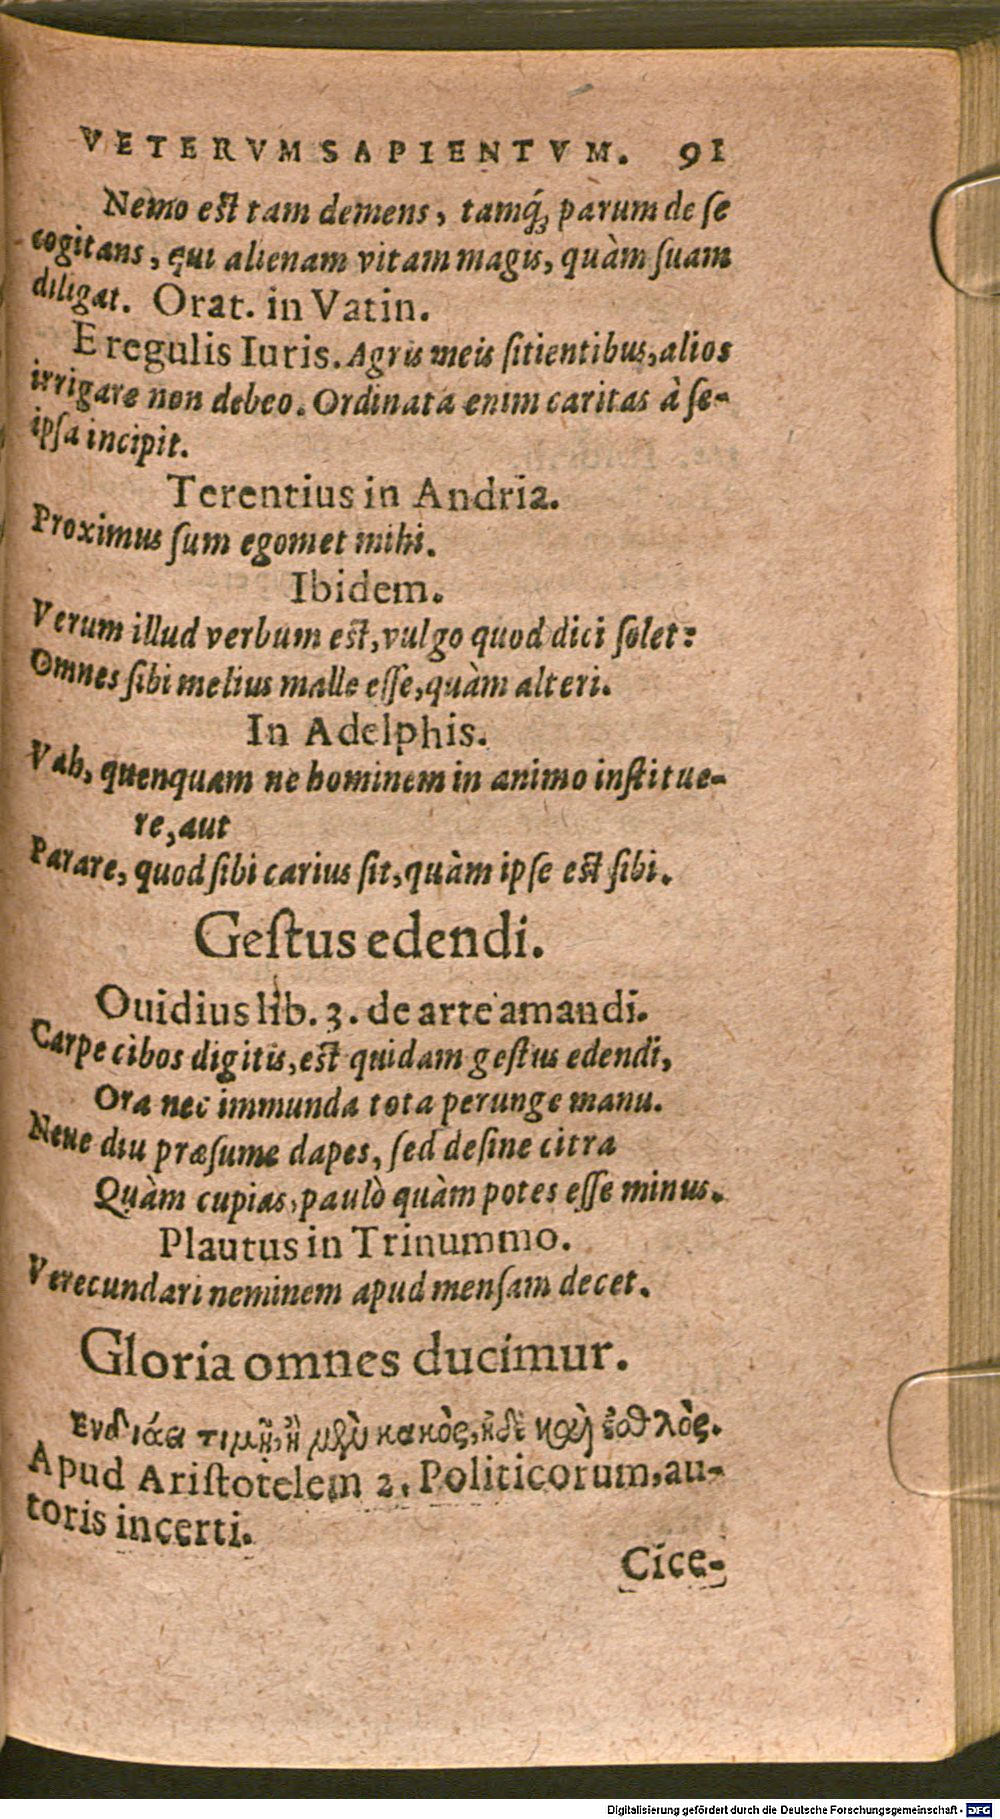 VETERVM SAPIENTVM. 91
Nemo eſt tam demens, tamq́; parum de ſe
cogitans, qui alienam vitam magis, quàm ſuam
diligat. Orat. in Vatin.
E regulis Iuris. Agris meis ſitientibus, alios
irrigare non debeo. Ordinata enim caritas à ſe-
ipſa incipit.
Terentius in Andria.
Proximus ſum egomet mihi.
Ibidem.
Verum illud verbum eſt, vulgo quod dici ſolet:
Omnes ſibi melius malle eſſe, quàm alteri.
In Adelphis.
Vah, quenquam ne hominem in animo inſtitue-
re, aut
Parare, quod ſibi carius ſit, quàm ipſe eſt ſibi.
Geſtus edendi.
Ouidius lib. 3. de arte amandi.
Carpe cibos digitis, eſt quidam geſtus edendi,
Ora nec immunda tota perunge manu.
Neue diu præſume dapes, ſed deſine citra
Quàm cupias, paulò quàm potes eſſe minus.
Plautus in Trinummo.
Verecundari neminem apud menſam decet.
Gloria omnes ducimur.
τιμῇ, ἢ μὲν κακὸς, ἠδὲ καὶ ἐσθλὸς.
Apud Ariſtotelem 2. Politicorum, au-
toris incerti.
Cice-
Digitalisierung gefördert durch die Deutsche Forschungsgemeinschaft - DFG